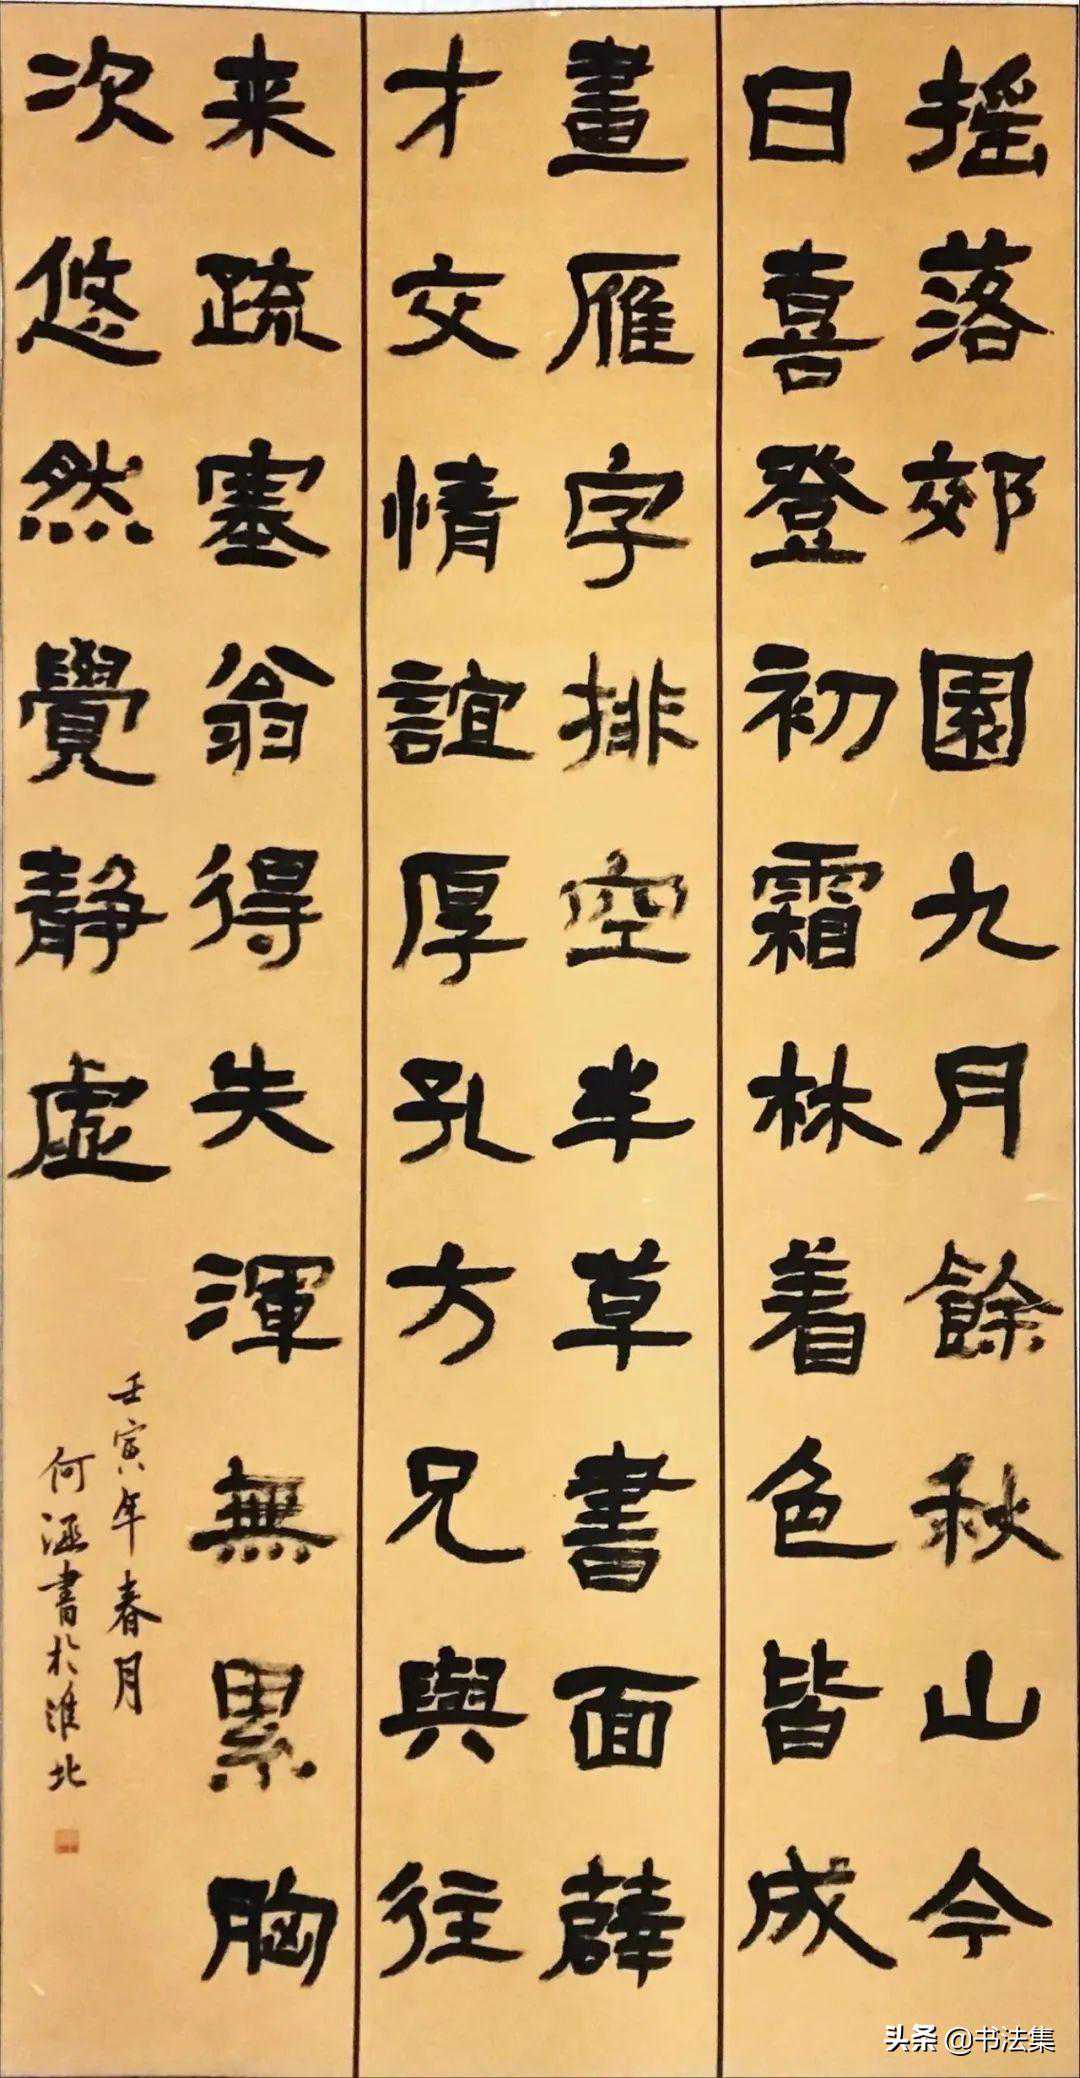 摇落郊園九月餘秋山今
日喜登初霜林着色皆成
畫雁字排空半草書面薜
才交情誼厚孔方兄與往
来疏塞翁得失渾無累胸
次悠然覺静虚
壬寅年春月
何涵書於淮北
头条 @书法集